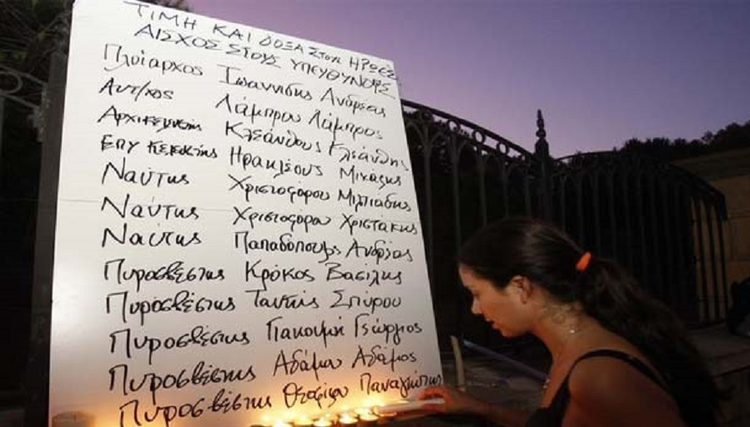 ΤΙΜΗ ΚΑΙ ΔΟΞΑ ΣΤΟΥΣ ΗΡΩΕΣ
ΑΙΣΧΟΣ ΣΤΟΥΣ ΥΠΕΥΘΥΝΟΥΣ
Πλοίαρχος Ιωαννίδης Ανδρέας
Αντ/χος Λάμπρου Λάμπρος
Αρχικελευστής Κλεάνθους Κλεάνθης
ΕΠΥ Κελευστής Ηρακλέους Μιχάλης
Ναύτης Χριστοφόρου Μιλτιάδης
Ναύτης Χριστοφόρου Χριστάκης
Ναύτης Παπαδόπουλος Ανδρέας
Πυροσβέστης Κρόκος Βασίλης
Πυροσβέστης Ταντής Σπύρου
Πυροσβέστης Γιακουμή Γεώργιος
Πυροσβέστης Αδάμου Αδάμος
Πυροσβέστης Θεοφίλου Παναγιώτης